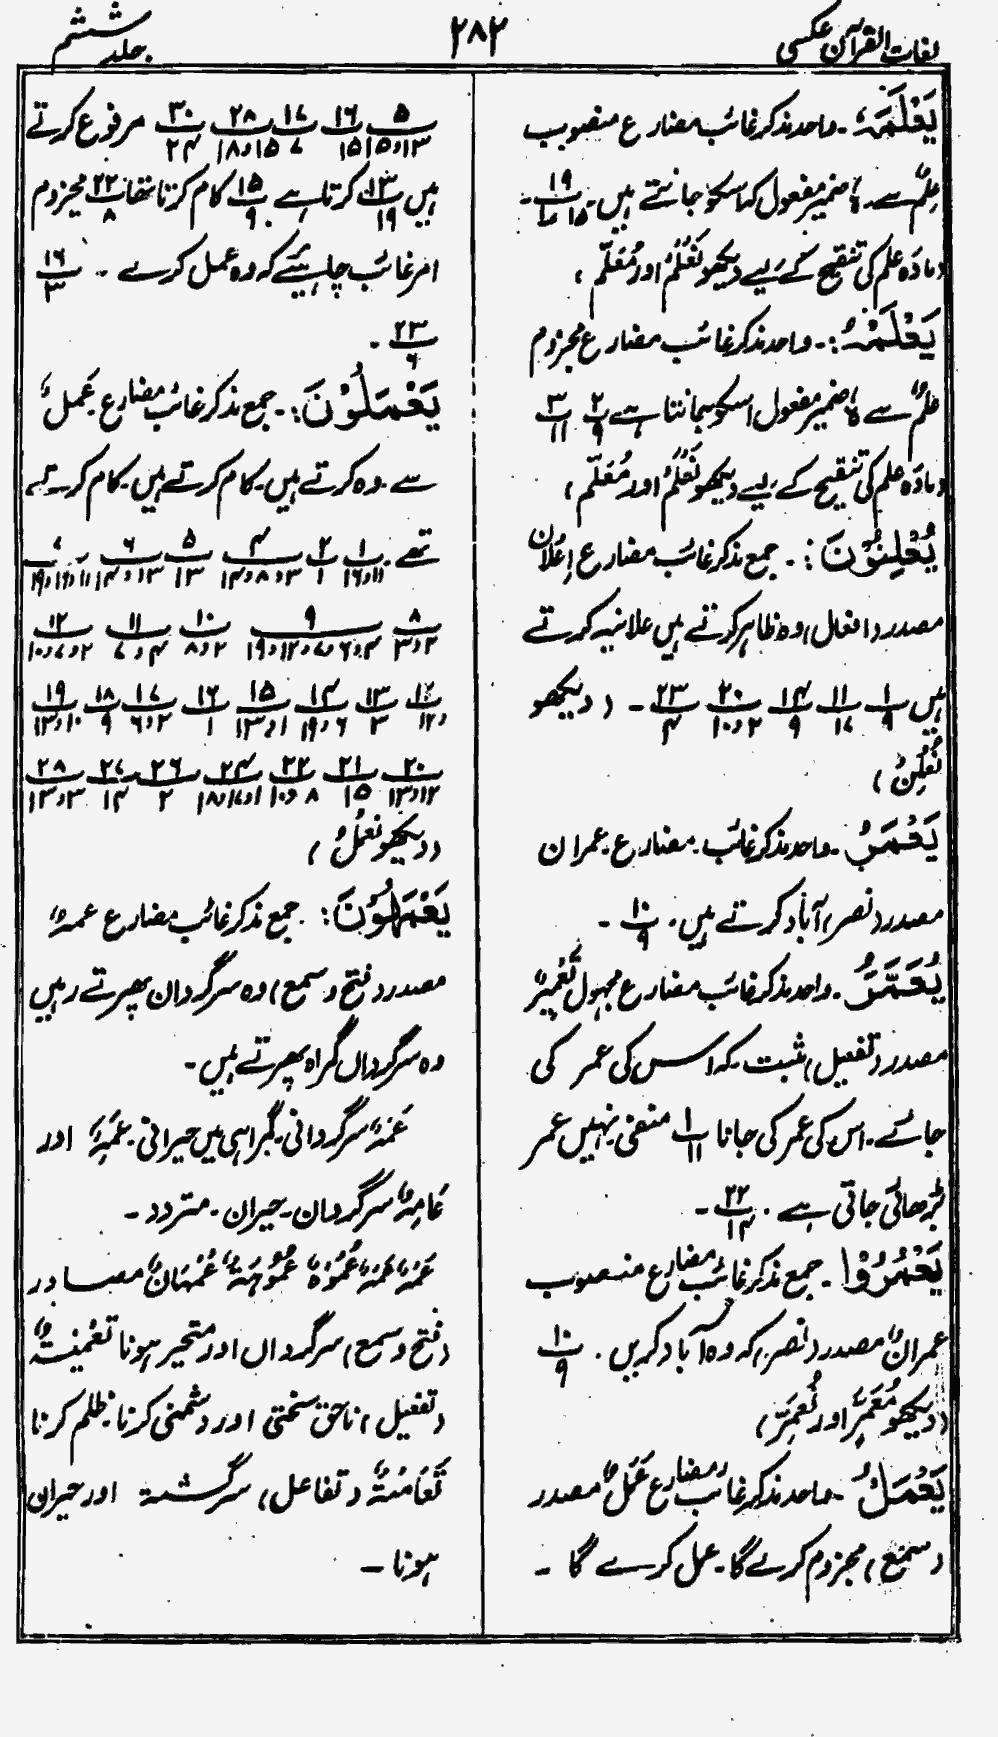 لغات القرآن عکسی
۲۸۲
جلد ششم
یَعْلَمَہٗ۔ واحد مذکر غائب مضارع منصوب
عِلْمٌ سے۔ ہٗ ضمیر مفعول کہ اسکو جانتے ہیں۔ ۱۹
(مادّہ علم کی تنقیح کے لیے دیکھو نَعْلَمُ اور مُعَلَّم)
یَعْلَمْہُ:۔ واحد مذکر غائب مضارع مجزوم
عِلْمٌ سے ہٗ ضمیر مفعول اسکو جانتا ہے ۲/۹ ۳/۱۱
(مادّہ علم کی تنقیح کے لیے دیکھو نَعْلَمُ اور مُعَلَّم)
یُعْلِنُوْنَ:۔ جمع مذکر غائب مضارع اِعْلَان
مصدر (افعال) وہ ظاہر کرتے ہیں علانیہ کرتے
ہیں ۱/۹ ۱۱/۱۷ ۱۴/۹ ۲۰/۲،۱۰ ۲۳/۴ ۔ (دیکھو
نُعْلِنُ)
یَعْمُرُ۔ واحد مذکر غائب۔ مضارع۔ عمران
مصدر (نصر) آباد کرتے ہیں۔ ۱۰/۹ ۔
یُعَمَّرُ۔ واحد مذکر غائب مضارع مجہول تَعْمِیْرٌ
مصدر (تفعیل) مثبت۔ کہ اس کی عمر کی
جائے۔ اس کی عمر کی جاتا ۱/۱۱ منفی نہیں عمر
بڑھائی جاتی ہے۔ ۲۲/۱۴ ۔
یَعْمُرُوْا۔ جمع مذکر غائب مضارع منصوب
عمرانٌ مصدر (نصر) کہ وہ آباد کریں۔ ۱۰/۹
(دیکھو مُعَمَّرٍ اور نُعَمِّرْ)
یَعْمَلْ۔ واحد مذکر غائب مضارع عَمَلٌ مصدر
(سمع) مجزوم کرے گا۔ عمل کرے گا ۔
۵/۱۳،۱۵ ۱۶/۱۵ ۱۷/۷ ۲۸/۱۵،۱۸ ۳۰/۲۴ مرفوع کرتے
ہیں ۱۳/۱۹ کرتا ہے ۱۵/۹ کام کرتا تھا ۲۲/۸ مجزوم
امر غائب چاہیئے کہ وہ عمل کرے ۔ ۱۶/۳
۲۳/۶ ۔
یَعْمَلُوْنَ:۔ جمع مذکر غائب مضارع۔ عَمَلٌ
سے۔ وہ کرتے ہیں۔ کام کرتے ہیں۔ کام کرتے
تھے۔ ۱/۱۱،۱۶ ۲/۱ ۴/۳،۸،۱۴ ۵/۱۳ ۶/۱۳،۱۴
۸/۲،۳ ۹/۴،۶،۷،۱۲،۱۹ ۱۰/۲،۸ ۱۱/۴،۷ ۱۲/۲،۷،۱۰
۱۳/۳ ۱۴/۶،۱۹ ۱۵/۱،۱۳ ۱۶/۱ ۱۷/۲،۶ ۱۸/۹ ۱۹/۱۰،۱۳
۲۰/۱۲،۱۳ ۲۱/۱۵ ۲۲/۸،۱۰ ۲۴/۱،۱۷،۱۸ ۲۶/۲ ۲۷/۱۴ ۲۸/۳،۱۳
(دیکھو نَعْمَلُ)
یَعْمَہُوْنَ:۔ جمع مذکر غائب مضارع عمہٌ
مصدر (فتح و سمع) وہ سرگردان پھرتے رہیں
وہ سرگرداں گمراہ پھرتے ہیں۔
عَمَہٌ سرگردانی۔ گمراہی میں حیرانی۔ عَمِہٌ اور
عَامِہٌ سرگردان۔ حیران۔ متردد۔
عَمَہٌ عَمَہٌ عُمُوْہٌ عُمُوْہَۃٌ عُمْہَانٌ مصادر
(فتح و سمع) سرگرداں اور متحیر ہونا
(تفعیل) ناحق سختی اور دشمنی کرنا۔ ظلم کرنا
(تفاعل) سرگشتہ اور حیران
ہونا ۔